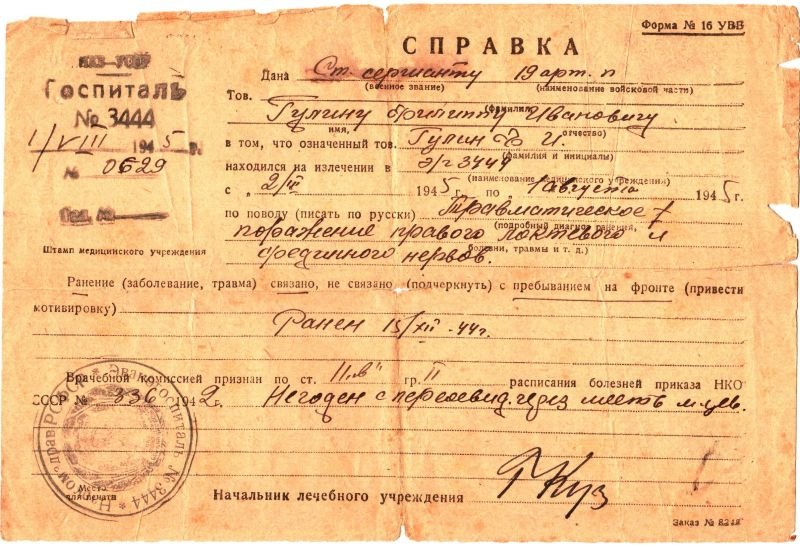 Форма № 16 УВВ
СПРАВКА
НКЗ-УССР
Госпиталь
№ 3444
1/VIII 1945 г.
№ 0629
Штамп медицинского учреждения
Дана Ст. сержанту 19 арт. п
(военное звание) (наименование войсковой части)
Тов. Гулину Филиппу Ивановичу
(фамилия,
имя, отчество)
в том, что означенный тов. Гулин Ф И.
(фамилия и инициалы)
находился на излечении в э/г 3444
(наименование медицинского учреждения)
с „ 2/III 1945 г. по 1 августа 1945 г.
по поводу (писать по русски) Травматическое
(подробный диагноз ранения,
поражение правого локтевого и
болезни, травмы и т. д.)
срединного нервов.
Ранение (заболевание, травма) связано, не связано (подчеркнуть) с пребыванием на фронте (привести
мотивировку)
Ранен 15/XII-44г.
Врачебной комиссией признан по ст. 11 „в" гр. II расписания болезней приказа НКО
СССР № 336 1942 г. Негоден с переосвид. через шесть м-цев.
Эвакогоспиталь № 3444 * Нарком здрав РСФСР *
Место
для печати
Начальник лечебного учреждения
Заказ № 8248